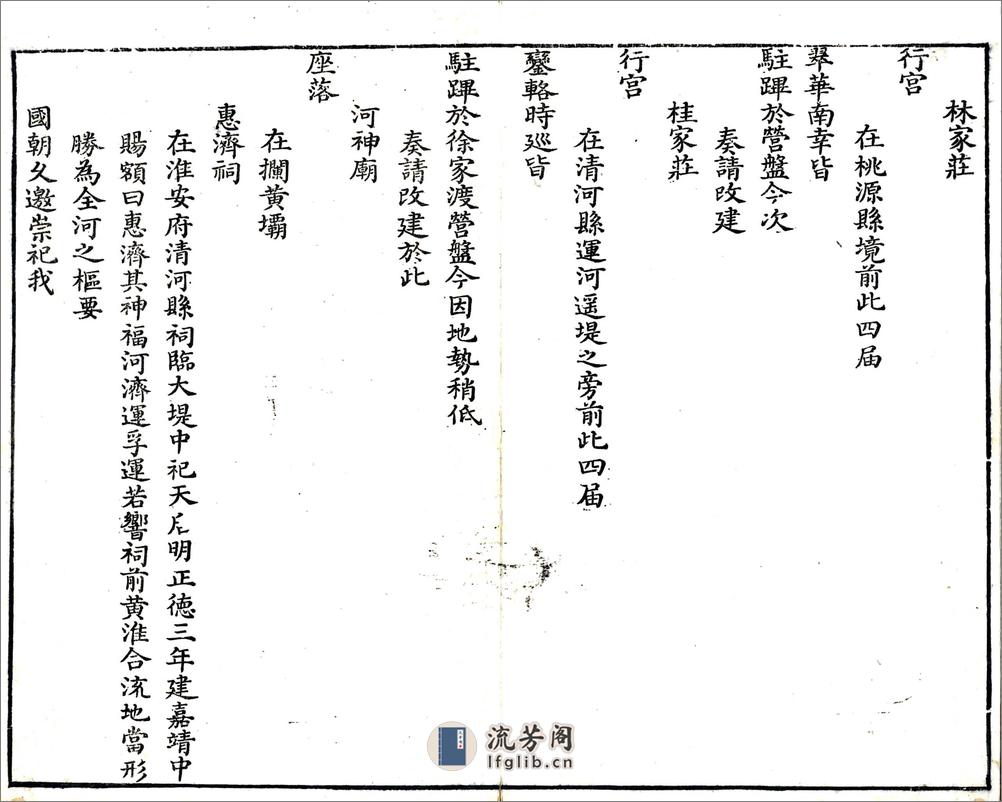 林家莊
行宫
在桃源縣境前此四届
翠華南幸皆
駐蹕於營盤今次
奏請改建
桂家莊
行宫
在清河縣運河遥堤之旁前此四届
鑾輅時廵皆
駐蹕於徐家渡營盤今因地勢稍低
奏請改建於此
座落
河神廟
在攔黄壩
惠濟祠
在淮安府清河縣祠臨大堤中祀天后明正德三年建嘉靖中
賜額曰惠濟其神福河濟運孚運若響祠前黄淮合流地當形
勝為全河之樞要
國朝久邀崇祀我
流芳阁
lfglib.cn